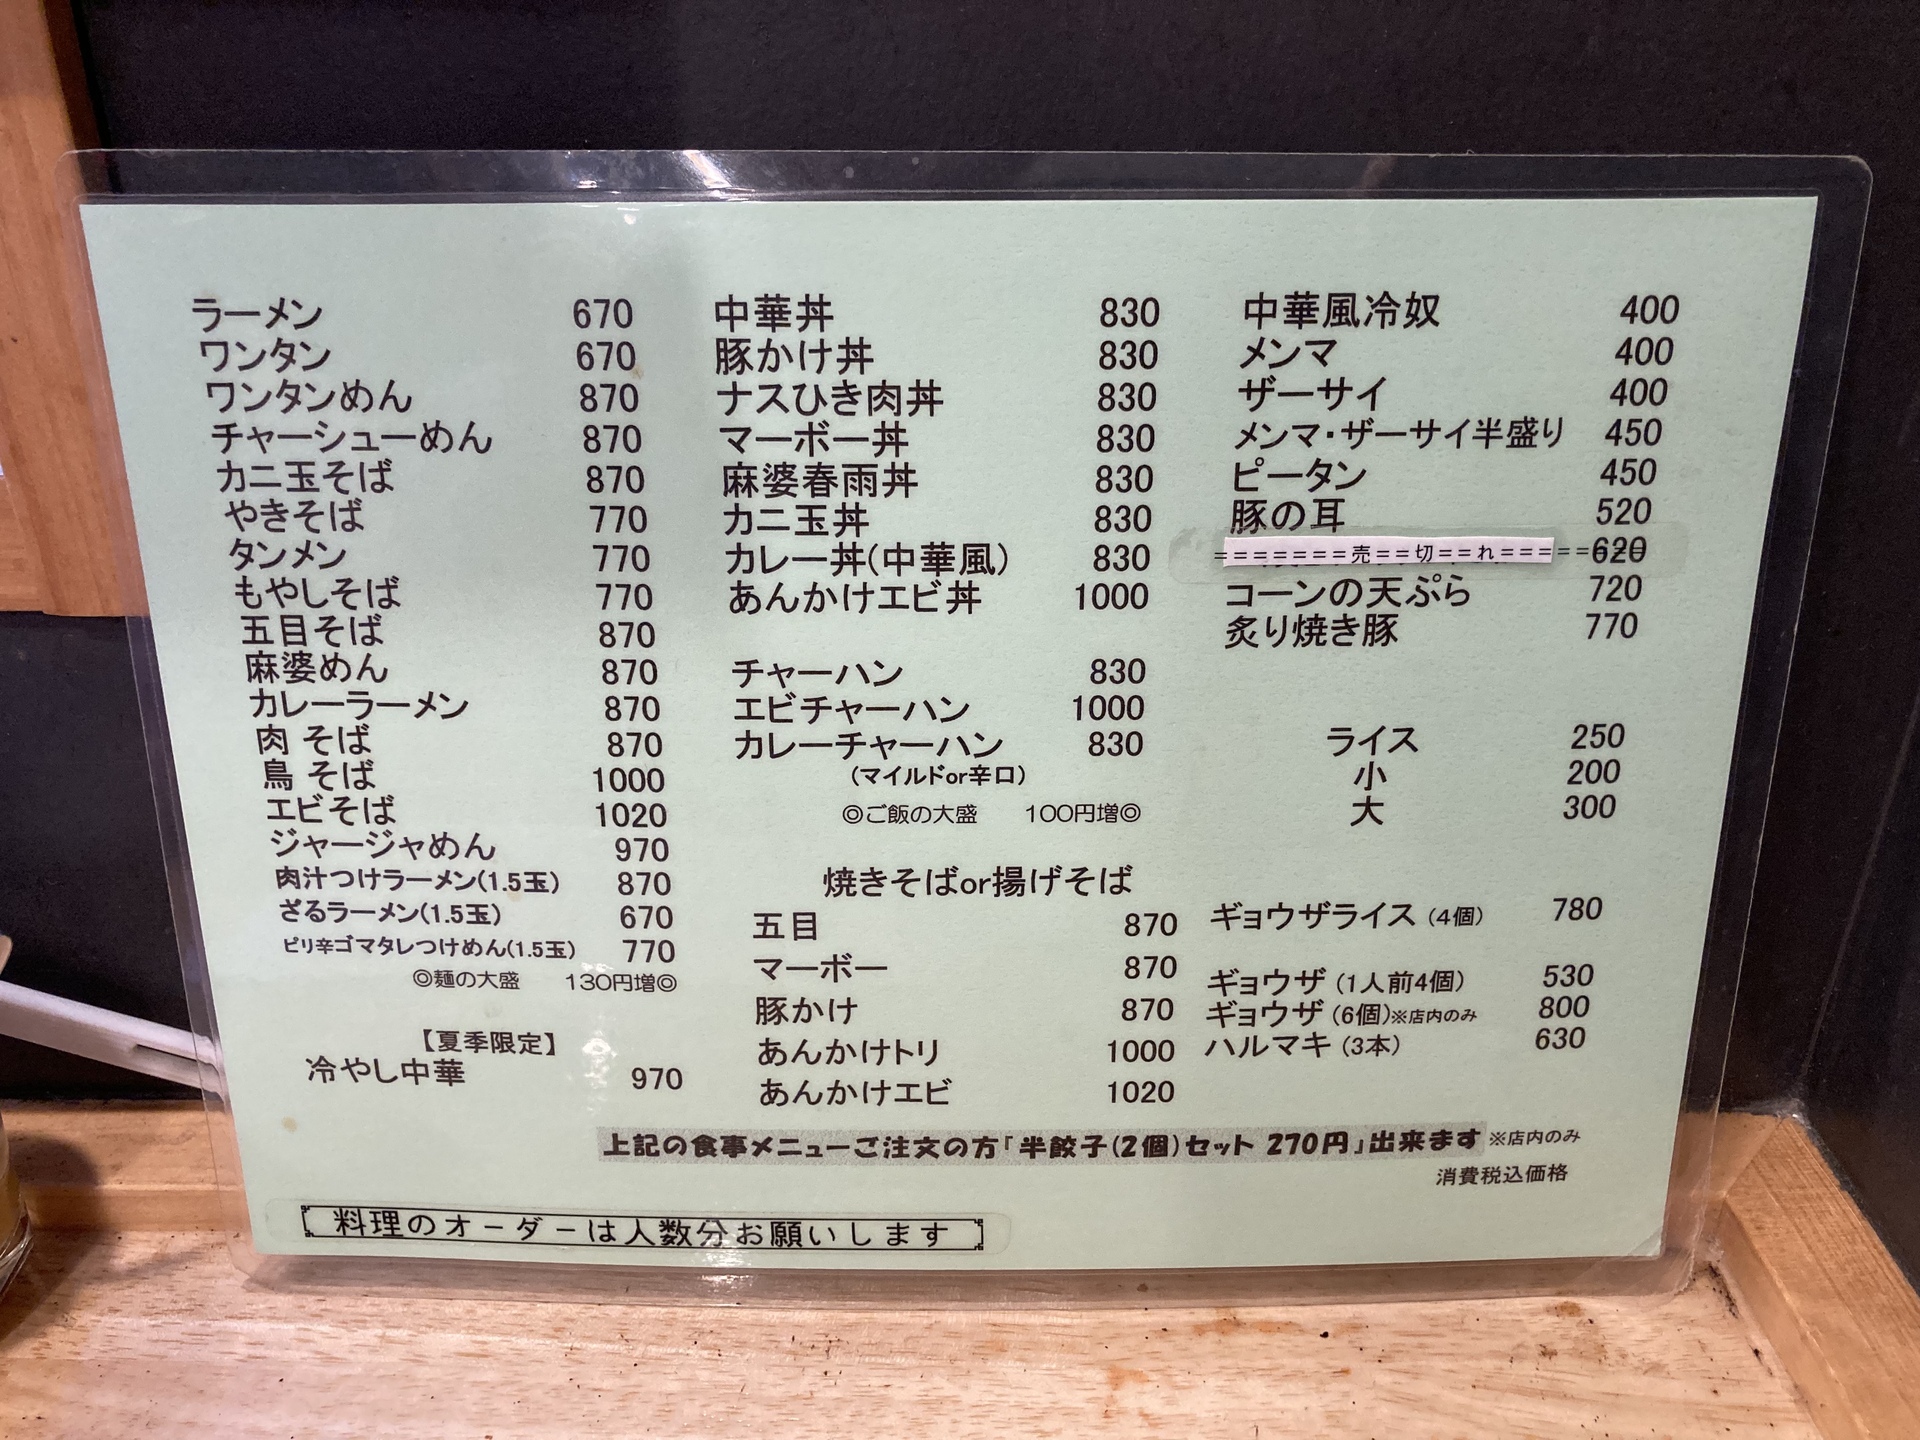 ラーメン 670
ワンタン 670
ワンタンめん 870
チャーシューめん 870
カニ玉そば 870
やきそば 770
タンメン 770
もやしそば 770
五目そば 870
麻婆めん 870
カレーラーメン 870
肉 そば 870
鳥 そば 1000
エビそば 1020
ジャージャめん 970
肉汁つけラーメン(1.5玉) 870
ざるラーメン(1.5玉) 670
ピリ辛ゴマタレつけめん(1.5玉) 770
◎麺の大盛 130円増◎
【夏季限定】
冷やし中華 970
中華丼 830
豚かけ丼 830
ナスひき肉丼 830
マーボー丼 830
麻婆春雨丼 830
カニ玉丼 830
カレー丼(中華風) 830
あんかけエビ丼 1000
チャーハン 830
エビチャーハン 1000
カレーチャーハン 830
(マイルドor辛口)
◎ご飯の大盛 100円増◎
焼きそばor揚げそば
五目 870
マーボー 870
豚かけ 870
あんかけトリ 1000
あんかけエビ 1020
中華風冷奴 400
メンマ 400
ザーサイ 400
メンマ・ザーサイ半盛り 450
ピータン 450
豚の耳 520
=======売==切==れ======620
コーンの天ぷら 720
炙り焼き豚 770
ライス 250
小 200
大 300
ギョウザライス (4個) 780
ギョウザ (1人前4個) 530
ギョウザ (6個)※店内のみ 800
ハルマキ (3本) 630
上記の食事メニューご注文の方「半餃子(2個)セット 270円」出来ます ※店内のみ
消費税込価格
料理のオーダーは人数分お願いします